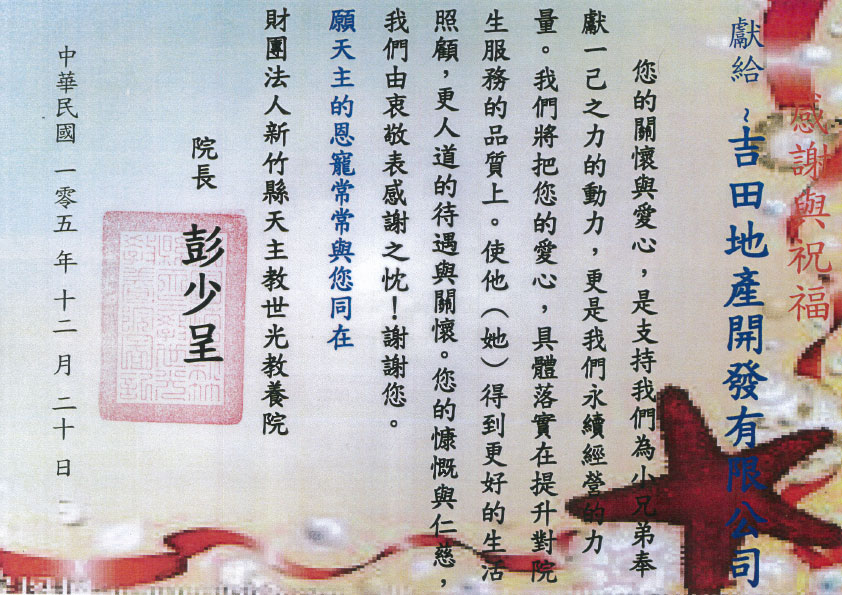 感謝與祝福
獻給~吉田地產開發有限公司
您的關懷與愛心，是支持我們為小兄弟奉
獻一己之力的動力，更是我們永續經營的力
量。我們將把您的愛心，具體落實在提升對院
生服務的品質上。使他（她）得到更好的生活
照顧，更人道的待遇與關懷。您的慷慨與仁慈，
我們由衷敬表感謝之忱！謝謝您。
願天主的恩寵常常與您同在
財團法人新竹縣天主教世光教養院
院長 彭少呈
中華民國一零五年十二月二十日